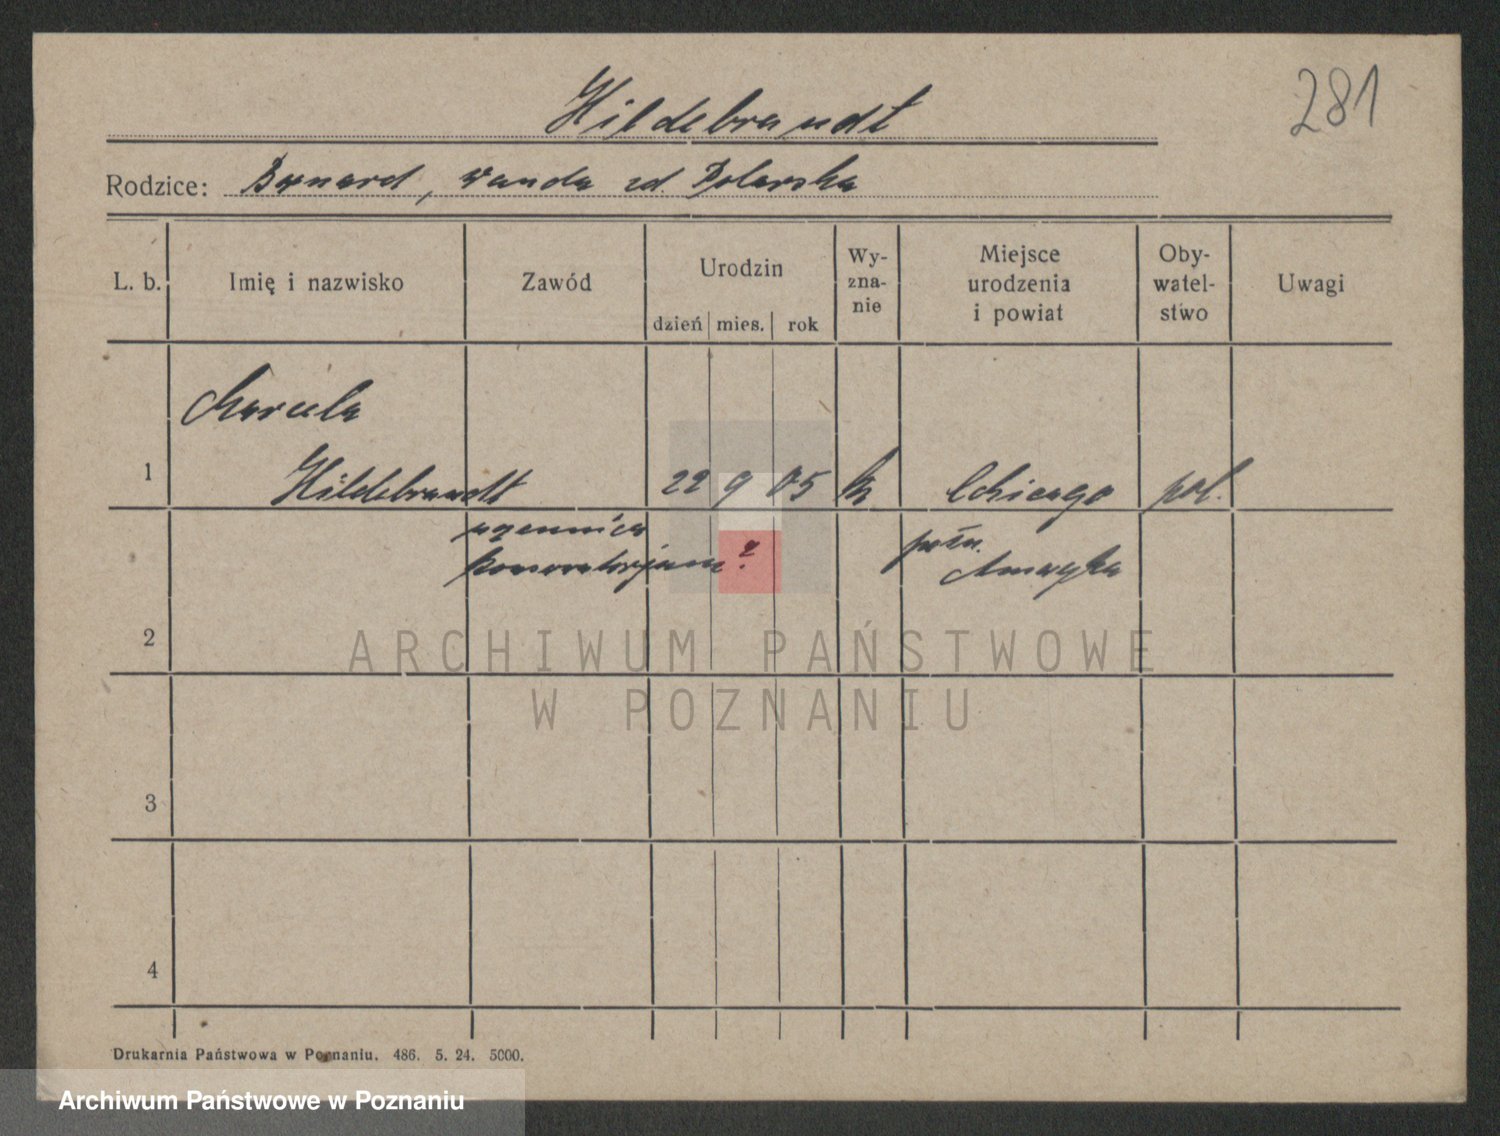 281
Hildebrandt
Rodzice: Bernard, Wanda zd. Polarska
L. b. Imię i nazwisko Zawód Urodzin dzień mies. rok Wy- zna- nie Miejsce urodzenia i powiat Oby- watel- stwo Uwagi
Marcela
1 Hildebrandt 22 9 05 Chicago pol.
uczennica
konserwatorjum
półn.
Ameryka
2
ARCHIWUM PAŃSTWOWE
W POZNANIU
3
4
Drukarnia Państwowa w Poznaniu. 486. 5. 24. 5000.
Archiwum Państwowe w Poznaniu